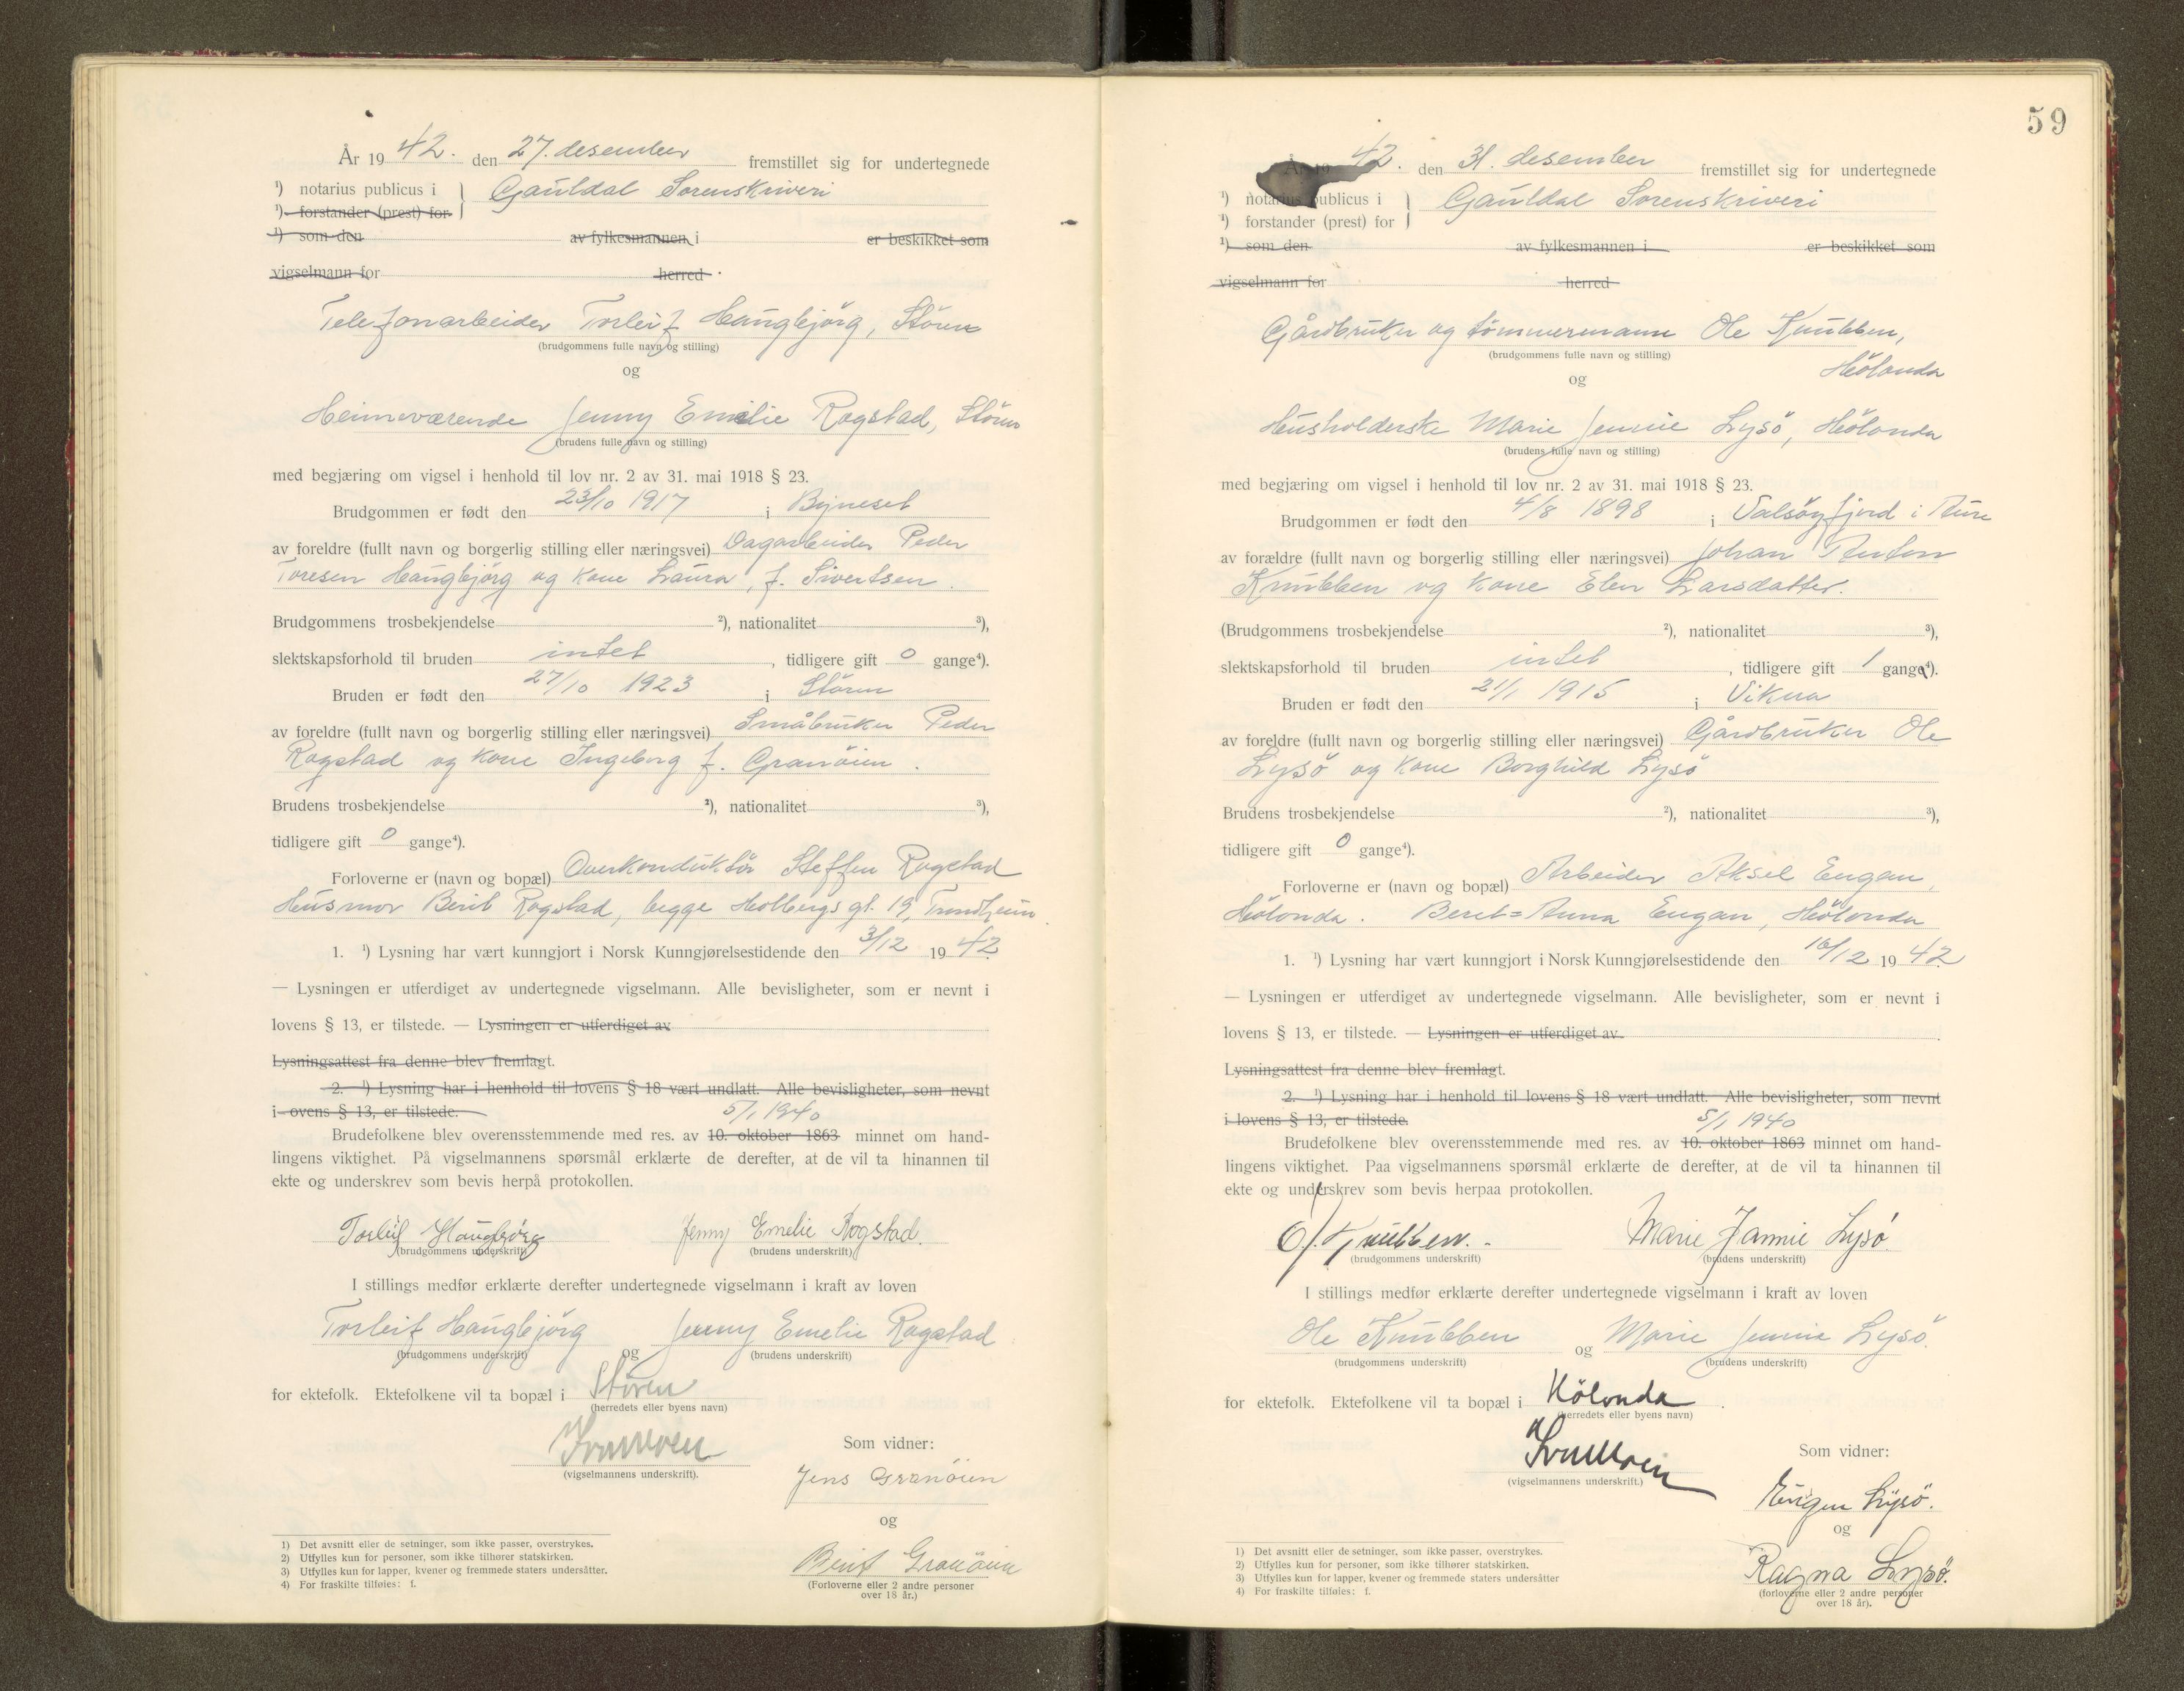 År 1942. den 27. desember fremstillet sig for undertegnede
¹) notarius publicus i } Gauldal Sorenskriveri
¹) forstander (prest) for
¹) som den av fylkesmannen i er beskikket som
vigselmann for herred
Telefonarbeider Torleif Haugbjörg, Stören
(brudgommens fulle navn og stilling)
og
Heimeværende Jenny Emelie Rogstad, Stören
(brudens fulle navn og stilling)
med begjæring om vigsel i henhold til lov nr. 2 av 31. mai 1918 § 23.
Brudgommen er født den 23/10 1917 i Byneset
av foreldre (fullt navn og borgerlig stilling eller næringsvei) Dagarbeider Peder
Toresen Haugbjörg og kone Laura, f. Sivertsen.
Brudgommens trosbekjendelse ²), nationalitet ³),
slektskapsforhold til bruden intet , tidligere gift 0 gange⁴).
Bruden er født den 27/10 1923 i Stören
av foreldre (fullt navn og borgerlig stilling eller næringsvei) Småbruker Peder
Rogstad og kone Ingeborg f. Granöien.
Brudens trosbekjendelse ²), nationalitet ³),
tidligere gift 0 gange⁴).
Forloverne er (navn og bopæl) Overkonduktör Steffen Rogstad
Husmor Berit Rogstad, begge Holbergs gt. 19, Trondheim.
1. ¹) Lysning har vært kunngjort i Norsk Kunngjørelsestidende den 3/12 1942.
— Lysningen er utferdiget av undertegnede vigselmann. Alle bevisligheter, som er nevnt i
lovens § 13, er tilstede. — Lysningen er utferdiget av
Lysningsattest fra denne blev fremlagt.
2. ¹) Lysning har i henhold til lovens § 18 vært undlatt. Alle bevisligheter, som nevnt
i ovens § 13, er tilstede.
5/1 1940
Brudefolkene blev overensstemmende med res. av 10. oktober 1863 minnet om hand-
lingens viktighet. På vigselmannens spørsmål erklærte de derefter, at de vil ta hinannen til
ekte og underskrev som bevis herpå protokollen.
Torleif Haugbjörg Jenny Emelie Rogstad.
(brudgommens underskrift) (brudens underskrift)
I stillings medfør erklærte derefter undertegnede vigselmann i kraft av loven
Torleif Haugbjörg og Jenny Emelie Rogstad
(brudgommens underskrift) (brudens underskrift)
for ektefolk. Ektefolkene vil ta bopæl i Støren
(herredets eller byens navn)
(vigselmannens underskrift).
Som vidner:
Jens Granöien
og
Berit Granöien
(Forloverne eller 2 andre personer
over 18 år.)
1) Det avsnitt eller de setninger, som ikke passer, overstrykes.
2) Utfylles kun for personer, som ikke tilhører statskirken.
3) Utfylles kun for lapper, kvener og fremmede staters undersåtter.
4) For fraskilte tilføies: f.
59
År 1942. den 31. desember fremstillet sig for undertegnede
¹) notarius publicus i } Gauldal Sorenskriveri
¹) forstander (prest) for
¹) som den av fylkesmannen i er beskikket som
vigselmann for herred
Gårdbruker og tömmermann Ole Knubben,
(brudgommens fulle navn og stilling)
Hölonda
og
Husholderske Marie Jennie Lysö, Hölonda
(brudens fulle navn og stilling)
med begjæring om vigsel i henhold til lov nr. 2 av 31. mai 1918 § 23.
Brudgommen er født den 4/8 1898 i Valsöyfjord i Aure
av forældre (fullt navn og borgerlig stilling eller næringsvei) Johan Anton
Knubben og kone Elen Larsdatter.
(Brudgommens trosbekjendelse ²), nationalitet ³),
slektskapsforhold til bruden intet , tidligere gift 1 gange⁴).
Bruden er født den 21/1 1915 i Vikna
av foreldre (fullt navn og borgerlig stilling eller næringsvei) Gårdbruker Ole
Lysö og kone Borghild Lysö
Brudens trosbekjendelse ²), nationalitet ³),
tidligere gift 0 gange⁴).
Forloverne er (navn og bopæl) Arbeider Aksel Engan,
Hölonda. Beret=Anna Engan, Hölonda
1. ¹) Lysning har vært kunngjort i Norsk Kunngjørelsestidende den 16/12 1942.
— Lysningen er utferdiget av undertegnede vigselmann. Alle bevisligheter, som er nevnt i
lovens § 13, er tilstede. — Lysningen er utferdiget av .
Lysningsattest fra denne blev fremlagt.
2. ¹) Lysning har i henhold til lovens § 18 vært undlatt. Alle bevisligheter, som nevnt
i lovens § 13, er tilstede.
5/1 1940
Brudefolkene blev overensstemmende med res. av 10. oktober 1863 minnet om hand-
lingens viktighet. Paa vigselmannens spørsmål erklærte de derefter, at de vil ta hinannen til
ekte og underskrev som bevis herpaa protokollen.
O. J. Knubben. Marie Jannie Lysö.
(brudgommens underskrift) (brudens underskrift)
I stillings medfør erklærte derefter undertegnede vigselmann i kraft av loven
Ole Knubben og Marie Jennie Lysö.
(brudgommens underskrift) (brudens underskrift)
for ektefolk. Ektefolkene vil ta bopæl i Hölonda .
(herredets eller byens navn)
(vigselmannens underskrift.)
Som vidner:
Eugen Lysö.
og
Ragna Lysö.
(forloverne eller 2 andre personer
over 18 år).
1) Det avsnitt eller de setninger, som ikke passer, overstrykes.
2) Utfylles kun for personer, som ikke tilhører statskirken.
3) Utfylles kun for lapper, kvener og fremmede staters undersåtter
4) For fraskilte tilføies: f.